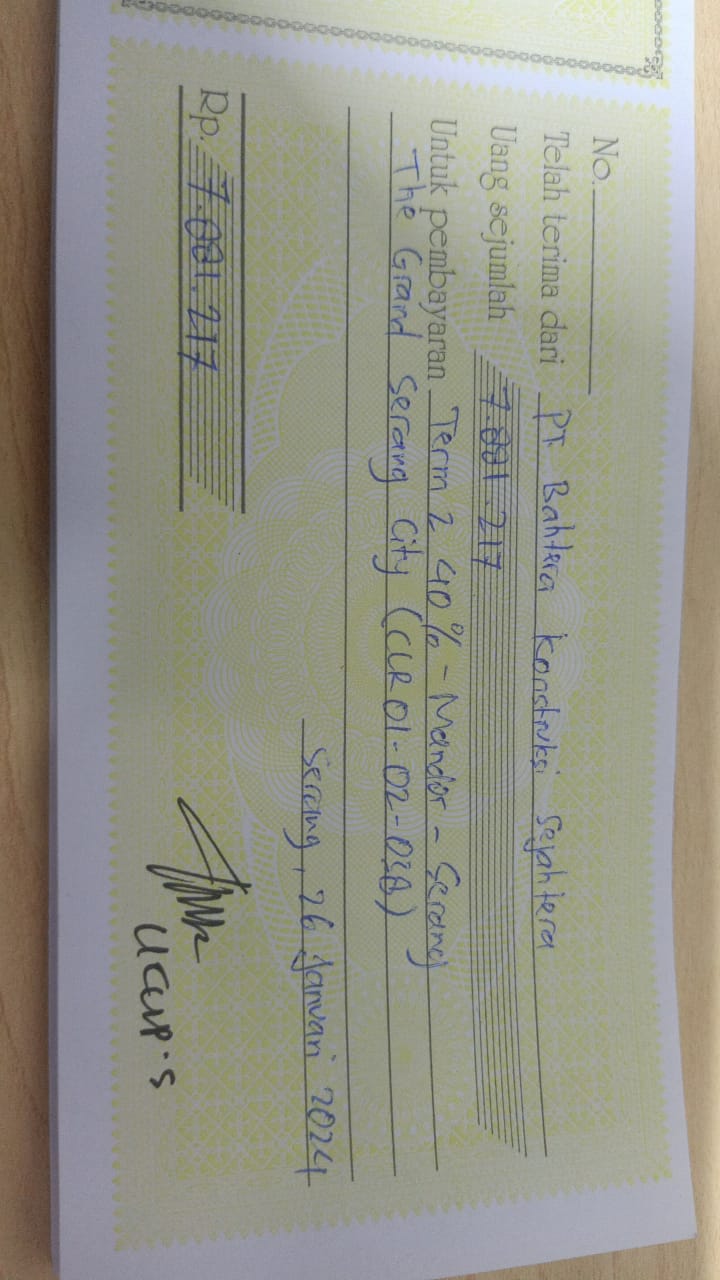 No.
Telah terima dari PT. Bahtera Konstruksi Sejahtera
Uang sejumlah 7.881.217
Untuk pembayaran Term 2 40% - Mandor - Serang
The Grand Serang City (CLR 01-02-03B)
Serang, 26 Januari 2024
Rp. 7.881.217
UCUP.S